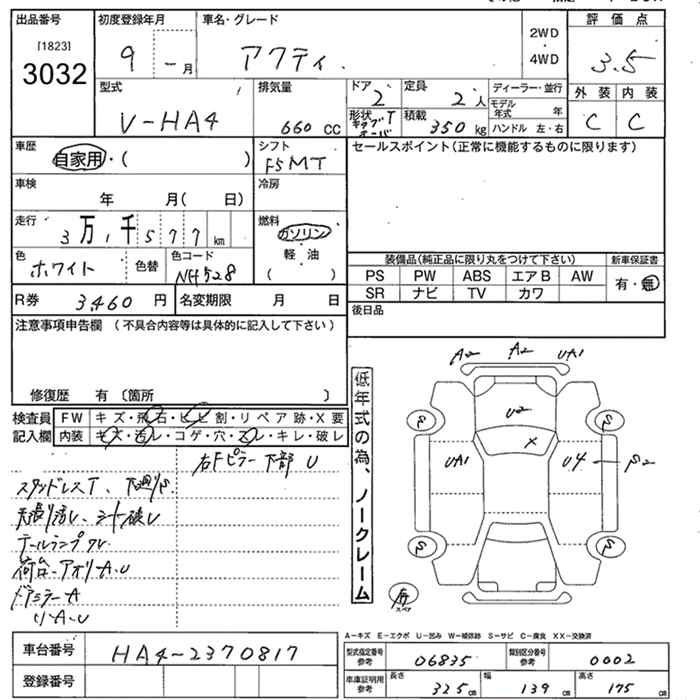 出品番号 初度登録年月 車名・グレード 2WD 評価点
[1823]
3032 9 - 月 アクティ 4WD 3.5
型式 排気量 ドア 定員 ディーラー・並行 外装 内装
V-HA4 660 cc 2 2 人 モデル年式 年 C C
形状 積載 350 kg ハンドル 左・右
車歴 自家用・( ) シフト F5MT セールスポイント(正常に機能するものに限ります)
車検 年 月( 日) 冷房
走行 3万1千577km 燃料 ガソリン
軽・油
( )
色 ホワイト 色替 色コード NH528
装備品(純正品に限り丸をつけて下さい) 新車保証書
PS PW ABS エアB AW 有・無
SR ナビ TV カワ
R券 3,460 円 名変期限 月 日 後日品
注意事項申告欄 (不具合内容等は具体的に記入して下さい)
修復歴 有 〔箇所 〕
検査員 FW キズ・飛石・ヒビ割・リペア跡・X要
記入欄 内装 キズ・汚レ・コゲ・穴・スレ・キレ・破レ
右Fピラー下部 U
スタンドレスT、下廻りS
天張り汚レ、シート破レ
テールランプワレ
荷台・アオリ-A.U
ドアミラーA
リA.U
低年式の為、ノークレーム
A2 A2 UA1
U2
X
UA1 U4 S2
S S
S S
有
スペア
A-キズ E-エクボ U-凹み W-補修跡 S-サビ C-腐食 XX-交換済
車台番号 HA4-2370817
登録番号
型式指定番号 参考 06835 類別区分番号 参考 0002
車庫証明用 参考 長さ 325 cm 幅 139 cm 高さ 175 cm